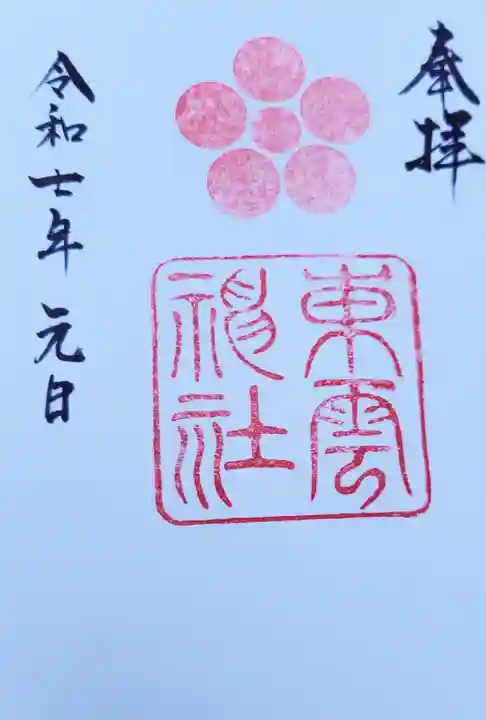 奉拝
東雲
神社
令和七年 元日